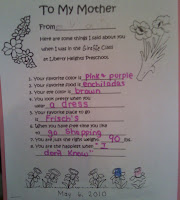 To My Mother
From
Here are some things I said about you
when I was in the Giraffe Class
at Liberty Heights Preschool.
1. Your favorite color is pink & purple
2. Your favorite food is enchiladas
3. Your eye color is brown
4. You look pretty when you
wear a dress
5. Your favorite place to go
is Frisch's
6. When you have free time you like
to go shopping
7. You are just the right weight, 90 lbs.
8. You are the happiest when "I
don't know"
May 6, 2010